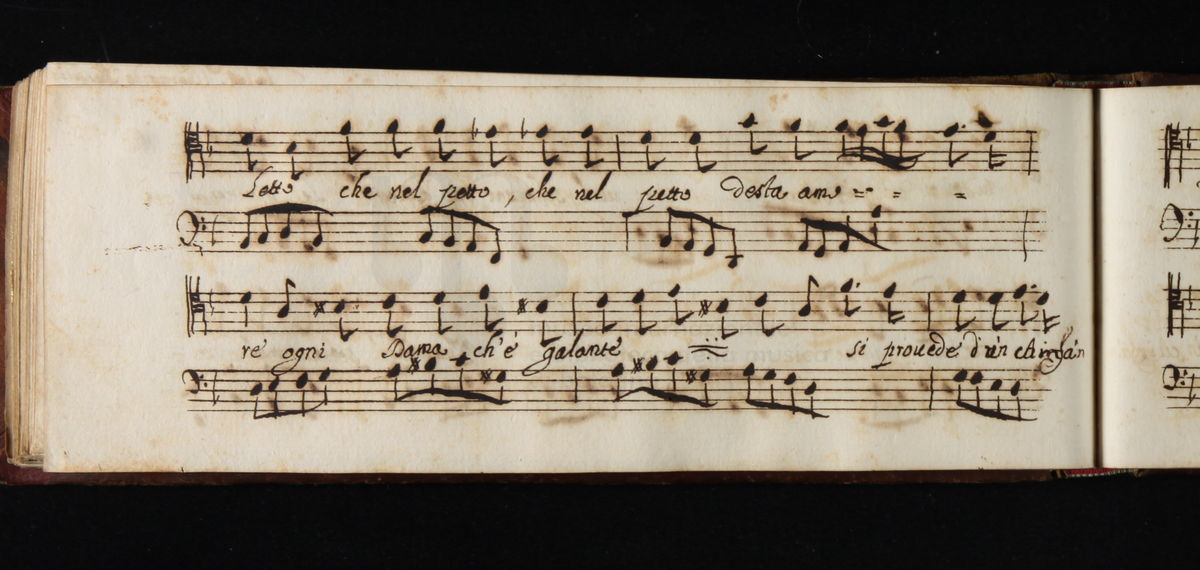 letto che nel petto, che nel petto desta amo = = =
re ogni Dama ch'è galante si prouede d'un